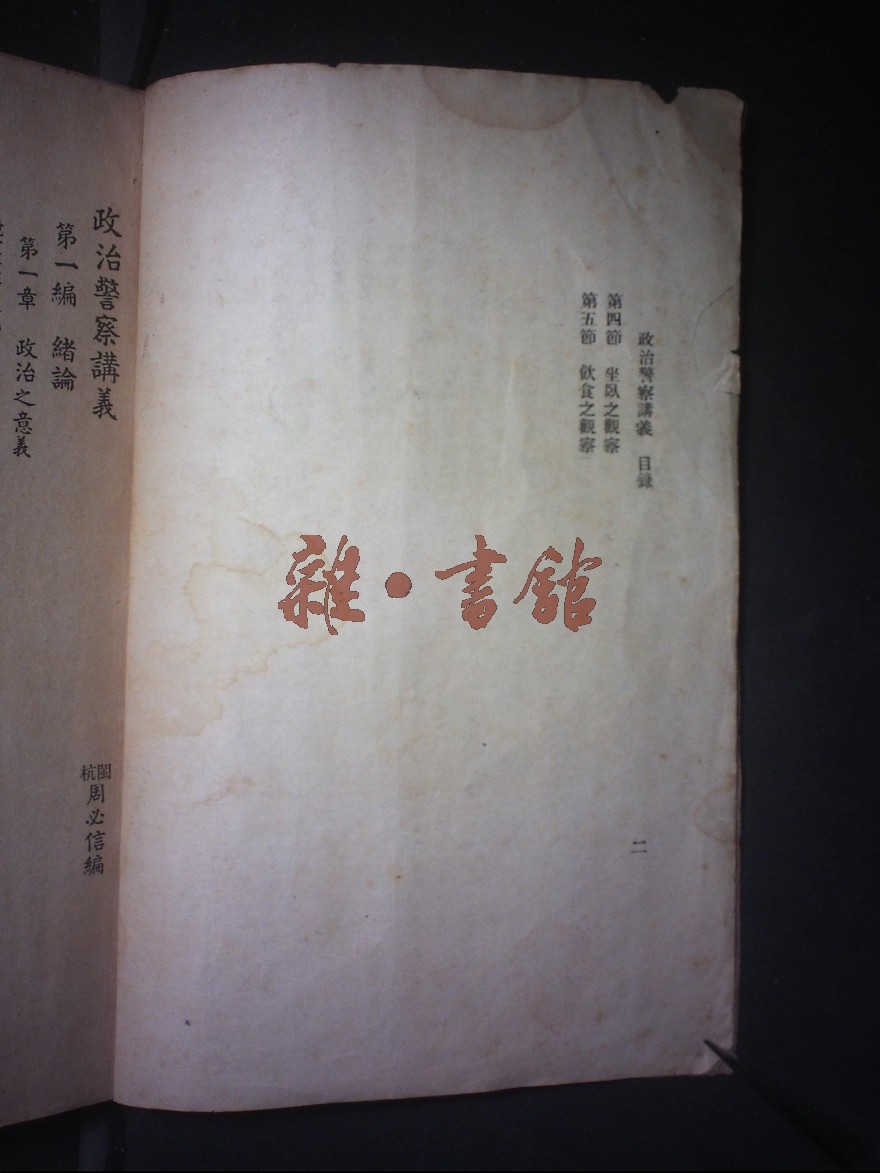 政治警察講義　目錄
第四節　坐臥之觀察
第五節　飲食之觀察
二
雜•書館
政治警察講義
閩杭周必信編
第一編　緒論
第一章　政治之意義